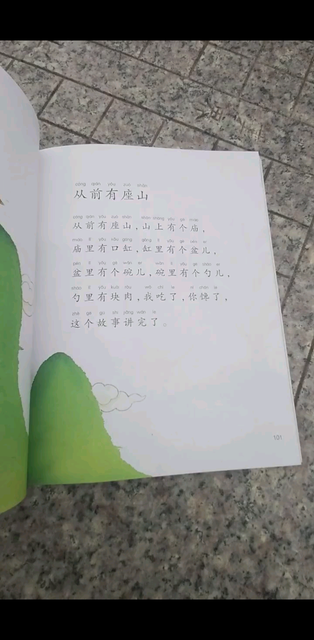 从前有座山
从前有座山，山上有个庙，
庙里有口缸，缸里有个盆儿，
盆里有个碗儿，碗里有个勺儿，
勺里有块肉，我吃了，你馋了，
这个故事讲完了。
101